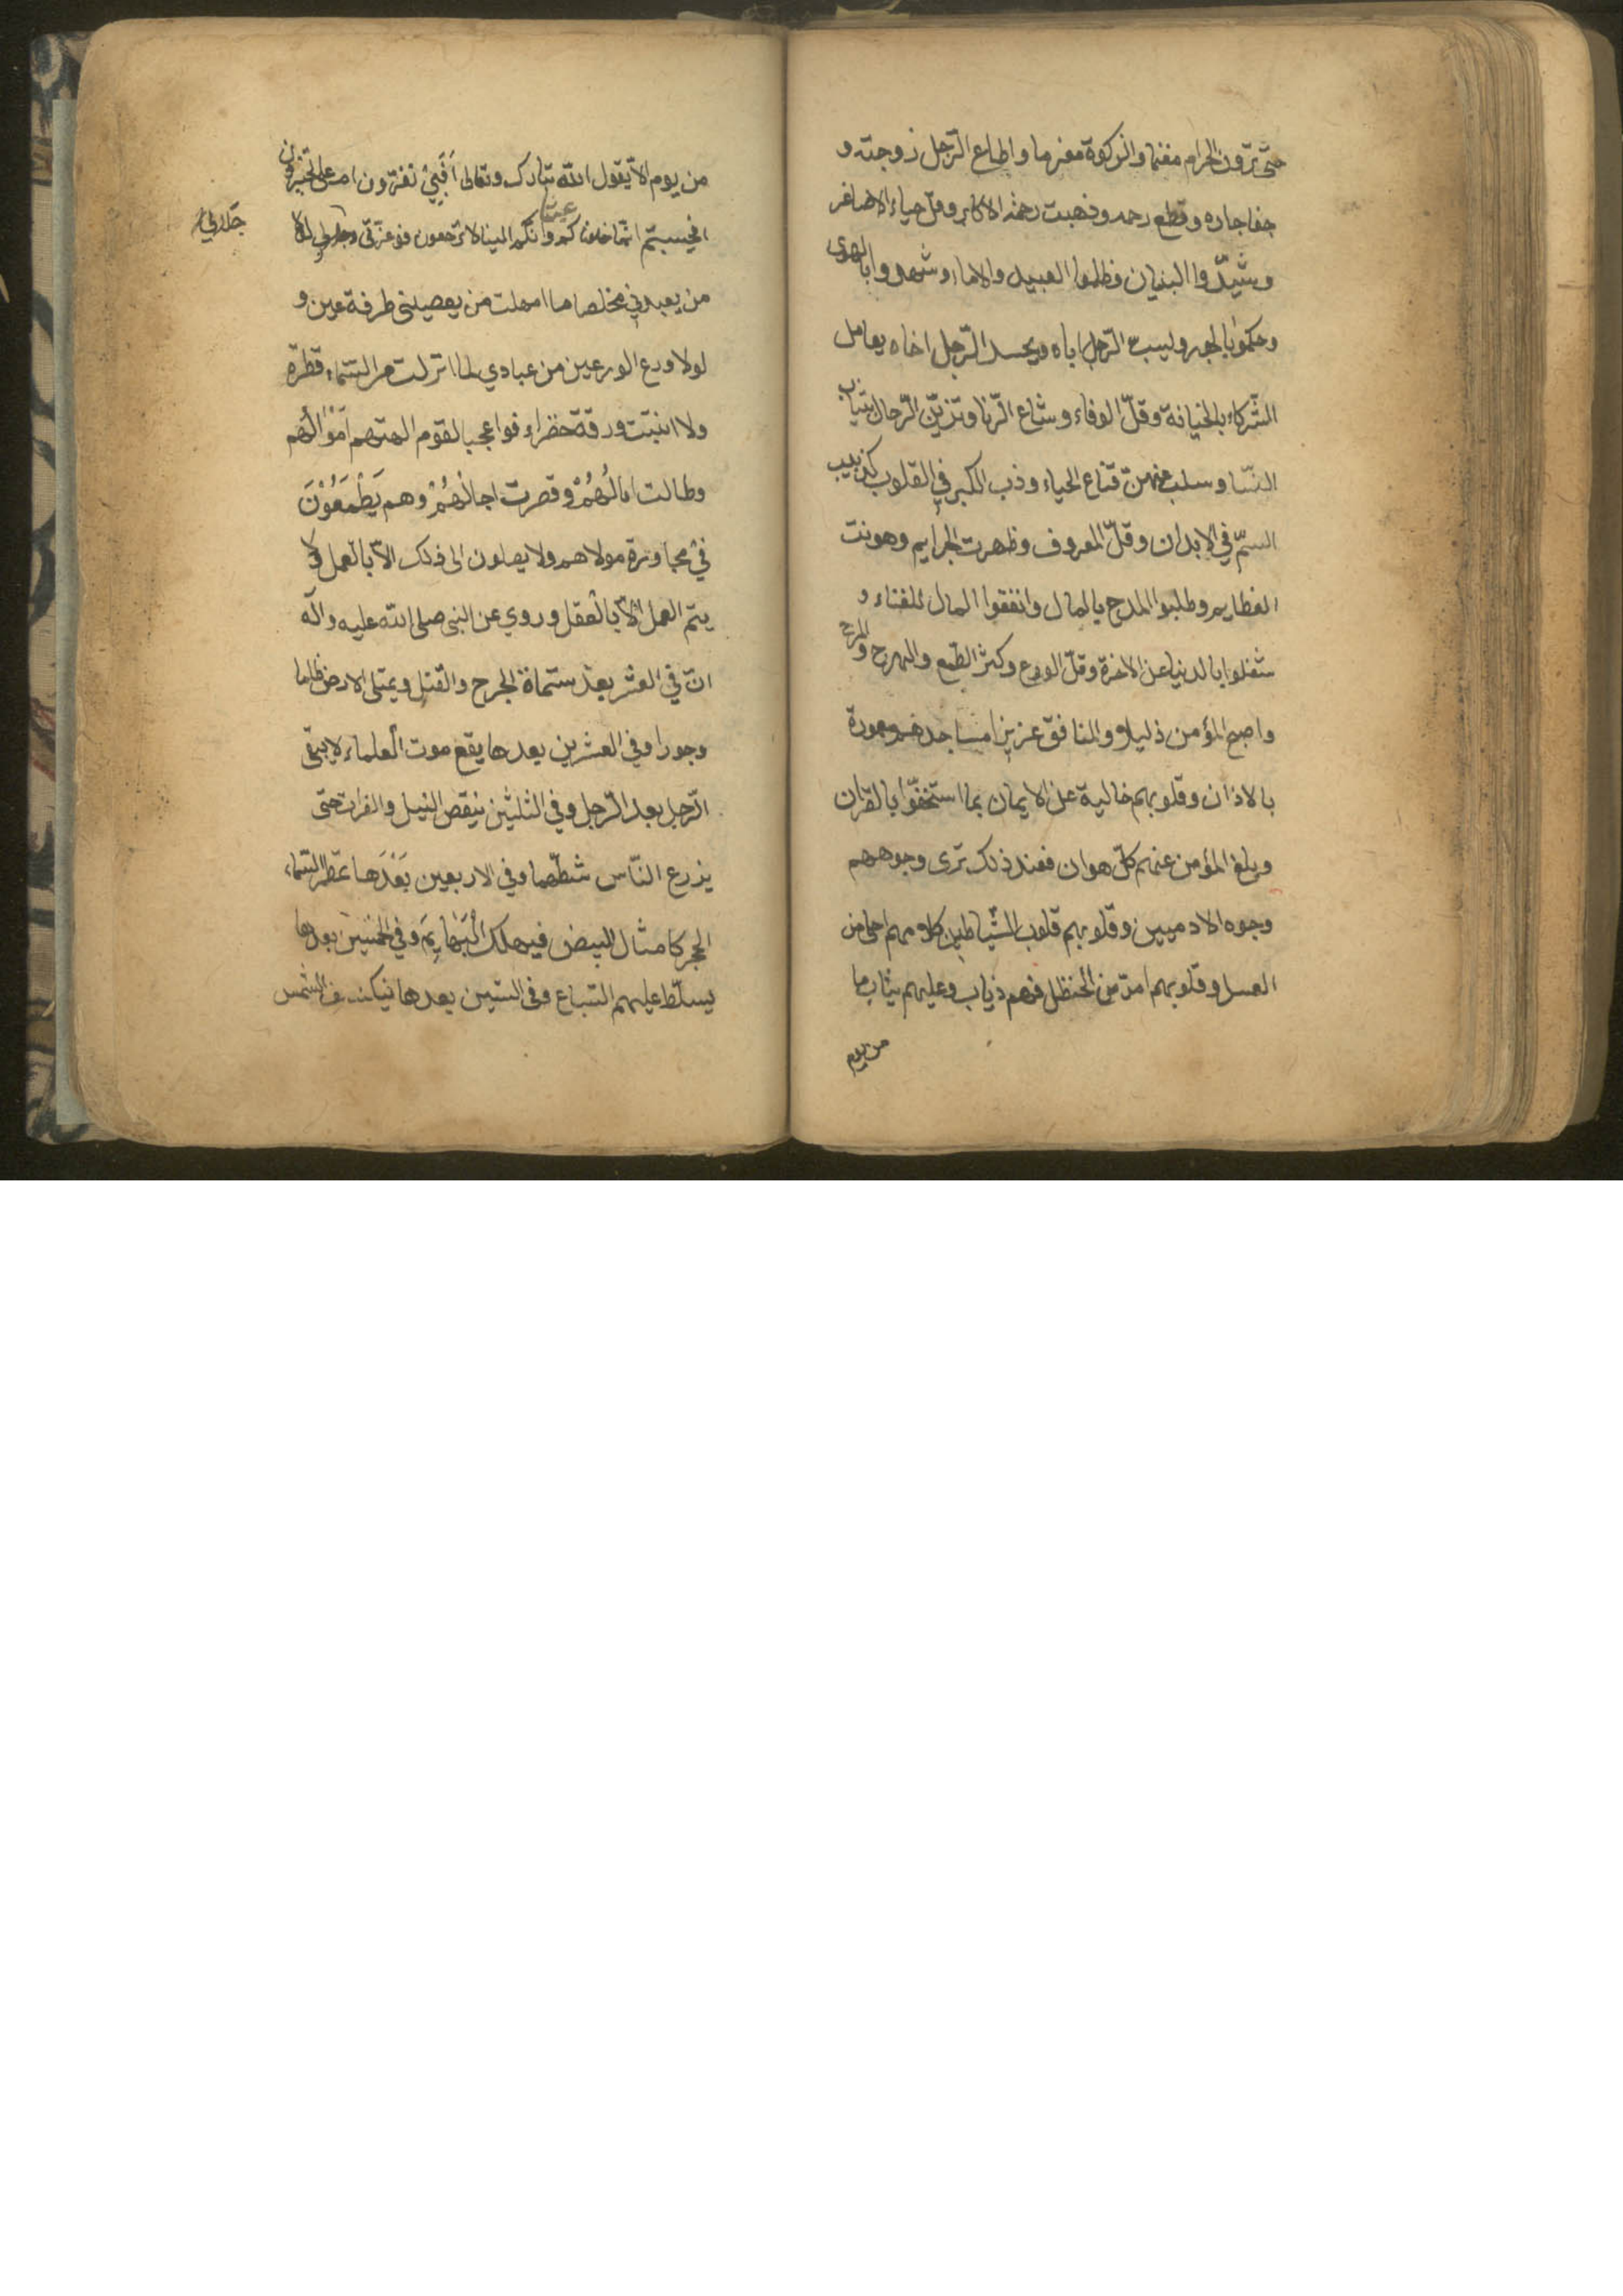 حتّى ترون الحرام مغنما والزكوة مغرما واطاع الرّجل زوجته و
جفا جاره وقطع رحمه وذهبت رحمة الاكابر وقلّ حياء الاصاغر
وشيّدوا البنيان وظلموا العبيد والاماء وشهدوا بالهوى
وحكموا بالجور ويسب الرّجل اباه ويحسد الرّجل اخاه يعامل
الشّركاء بالخيانة وقلّ الوفاء وشاع الزّنا وتزيّن الرّجال بثياب
النسّا وسلب عنهنّ قناع الحياء ودبّ الكبر في القلوب كدبيب
السمّ في الابدان وقلّ المعروف وظهرت الجرايم وهونت
العظايم وطلبوا المدح بالمال وانفقوا المال للغناء و
شغلوا بالدنيا عن الاخرة وقلّ الورع وكثر الطّمع والهرج والمرج
واصبح المؤمن ذليلا والمنافق عزيزا مساجدهم معمورة
بالاذان وقلوبهم خالية عن الايمان بما استخفّوا بالقران
وبلغ المؤمن عنهم كلّ هوان فعند ذلك ترى وجوههم
وجوه الادميين وقلوبهم قلوب الشّياطين كلامهم احلى من
العسل وقلوبهم امرّ من الحنظل فهم ذياب وعليهم ثياب ما
من يوم
من يوم الاّ يقول الله تبارك وتعالى افبي تغترّون ام علىّ تجترؤن
افحسبتم انّما خلقناكم عبثا وانكم الينا لا ترجعون فوعزّتي وجلالي لولا
جلالي
من يعبدني مخلصا ما امهلت من يعصيني طرفة عين و
لولا ورع الورعين من عبادي لما انزلت من السّماء قطرة
ولا انبتت ورقة خضراء فواعجبا لقوم الهتهم اموالهم
وطالت امالهم وقصرت اجالهم وهم يطمعون
في مجاورة مولاهم ولا يصلون الى ذلك الاّ بالعمل ولا
يتمّ العمل الاّ بالعقل وروي عن النبي صلى الله عليه واله
انّ في العشر بعد ستماة الجرح والقتل ويمتلى الارض ظلما
وجورا وفي العشرين بعدها يقع موت العلماء لا يبقى
الرّجل بعد الرّجل وفي الثلثين ينقص النيل والفرات حتى
يزرع النّاس شطّهما وفي الاربعين بعدها تمطر السّماء
الحجر كامثال البيض فيهلك البهايم وفي الخمسين بعدها
يسلّط عليهم السّباع وفي الستين بعدها ينكسف الشمس